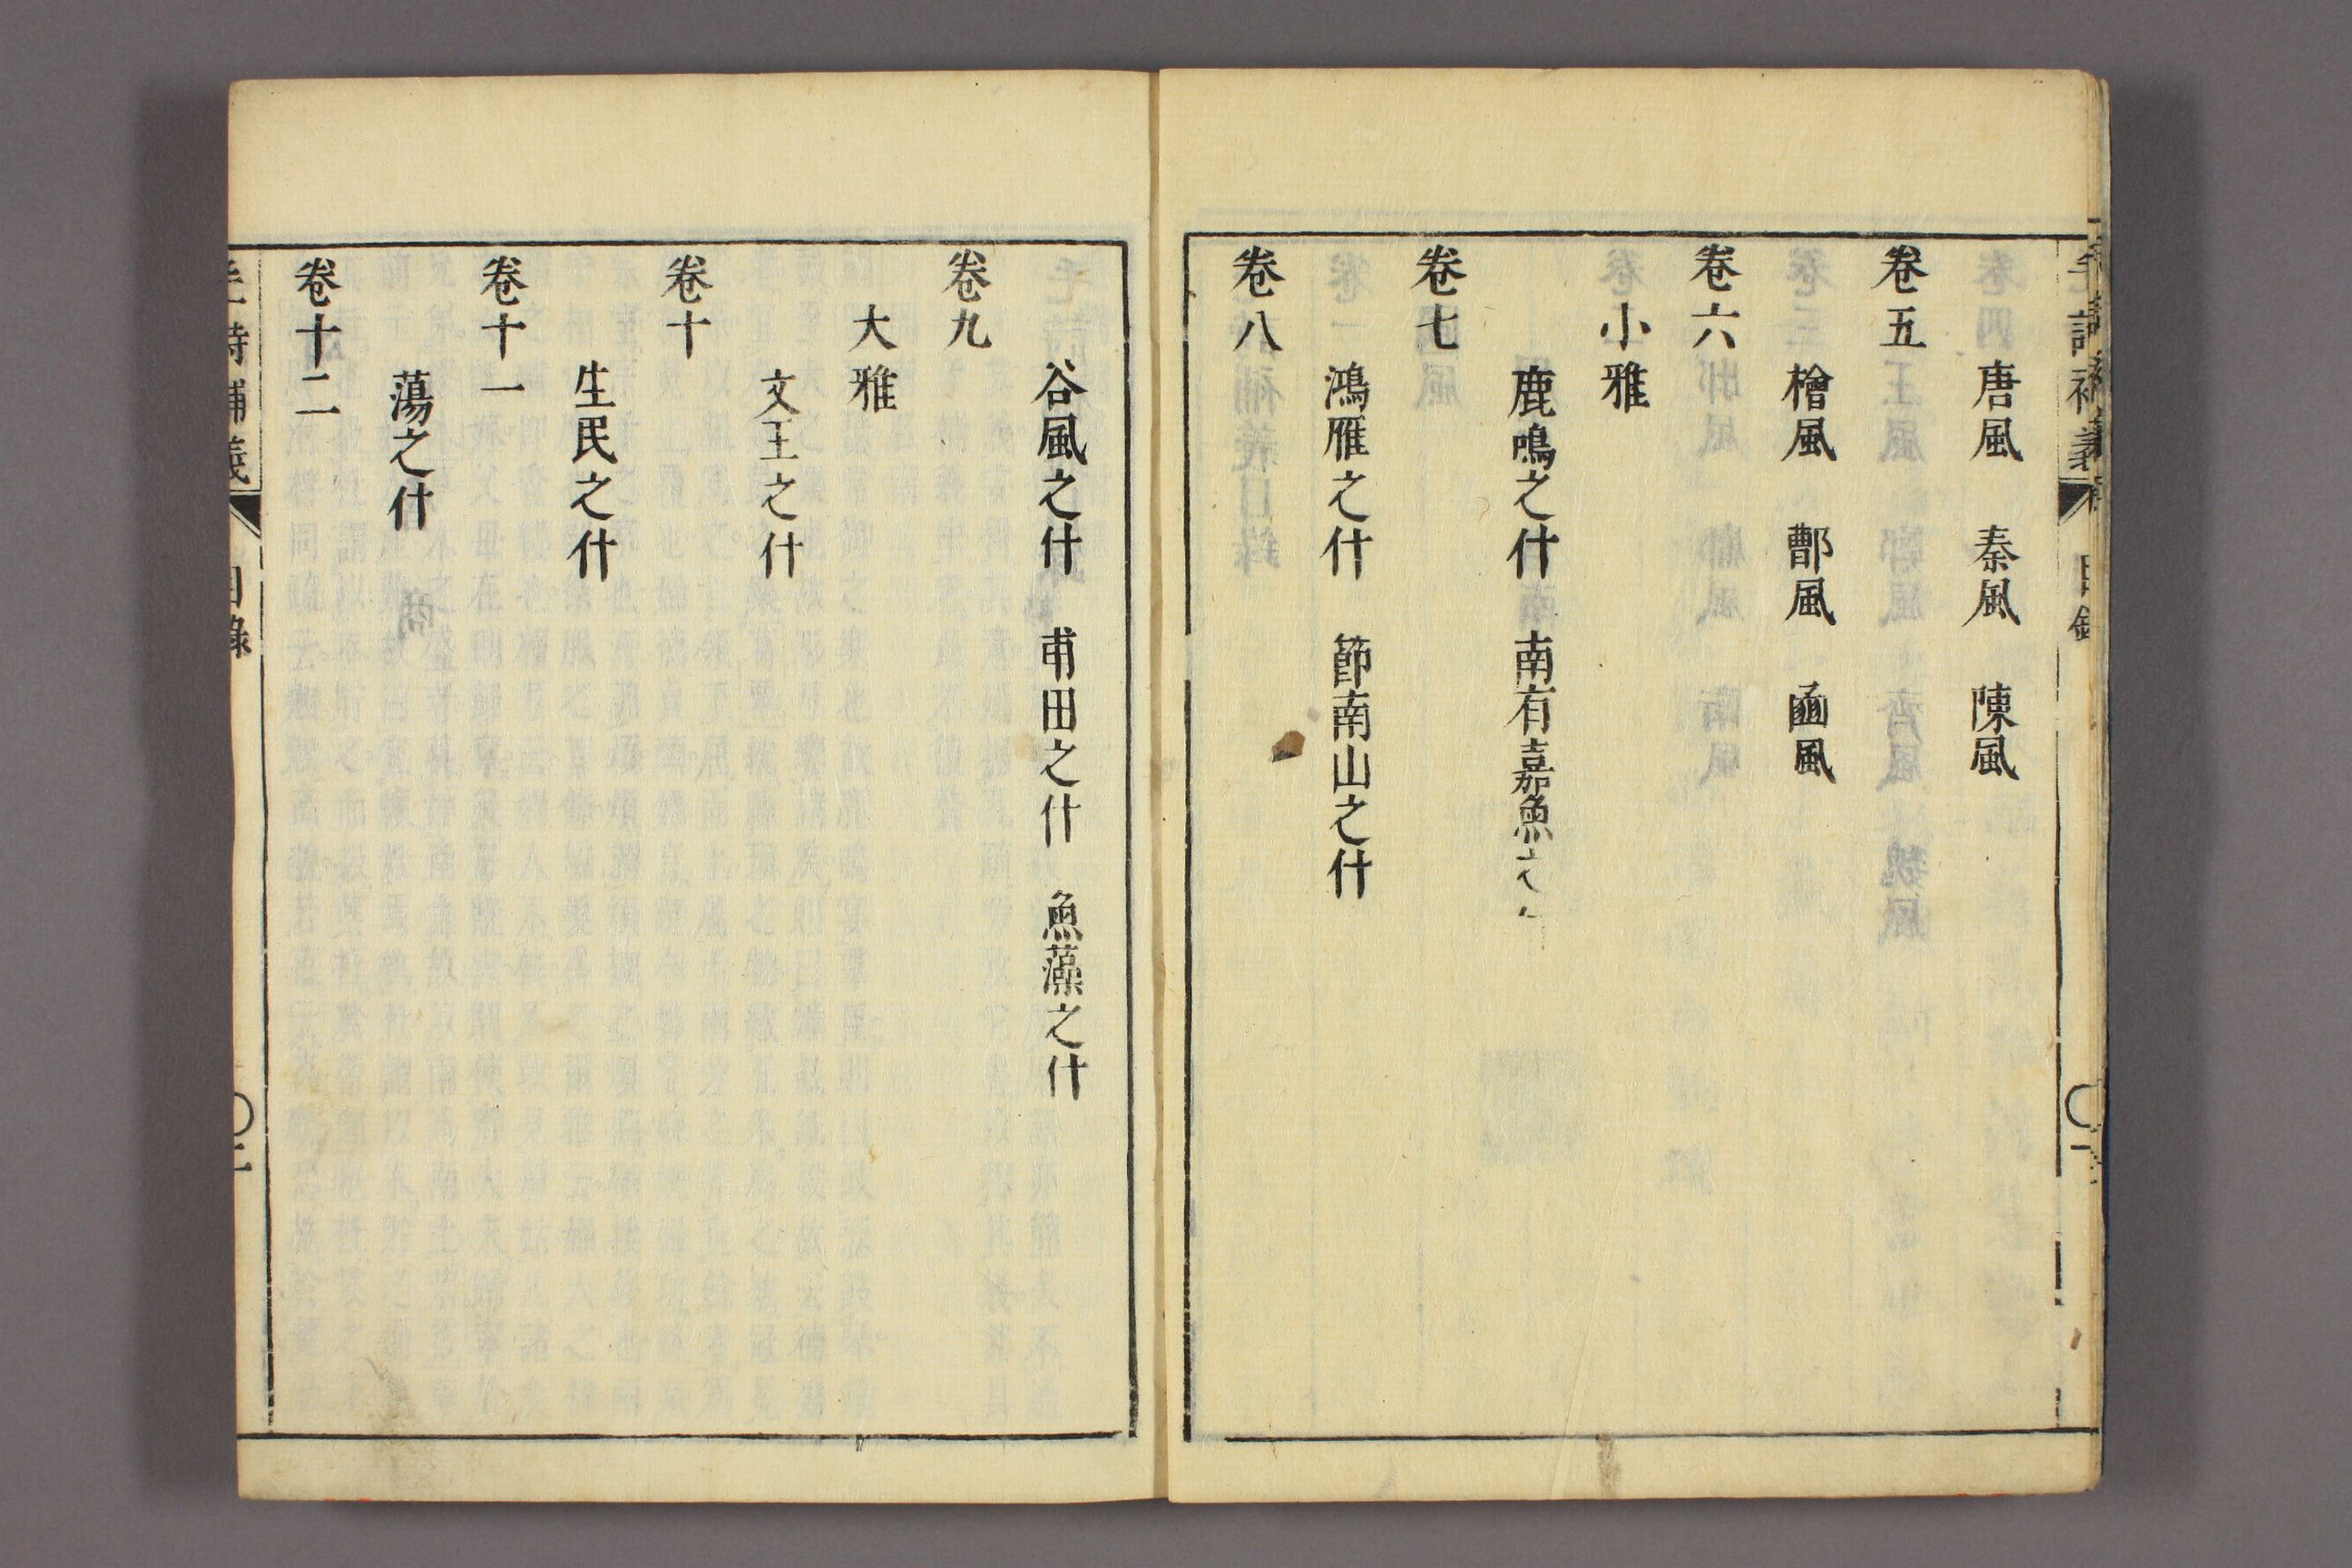 唐風　秦風　陳風
卷五
檜風　鄶風　豳風
卷六
小雅
鹿鳴之什　南有嘉魚之
卷七
鴻雁之什　節南山之什
卷八
谷風之什　甫田之什　魚藻之什
卷九
大雅
文王之什
卷十
生民之什
卷十一
蕩之什
卷十二
毛詩補義　目錄　二